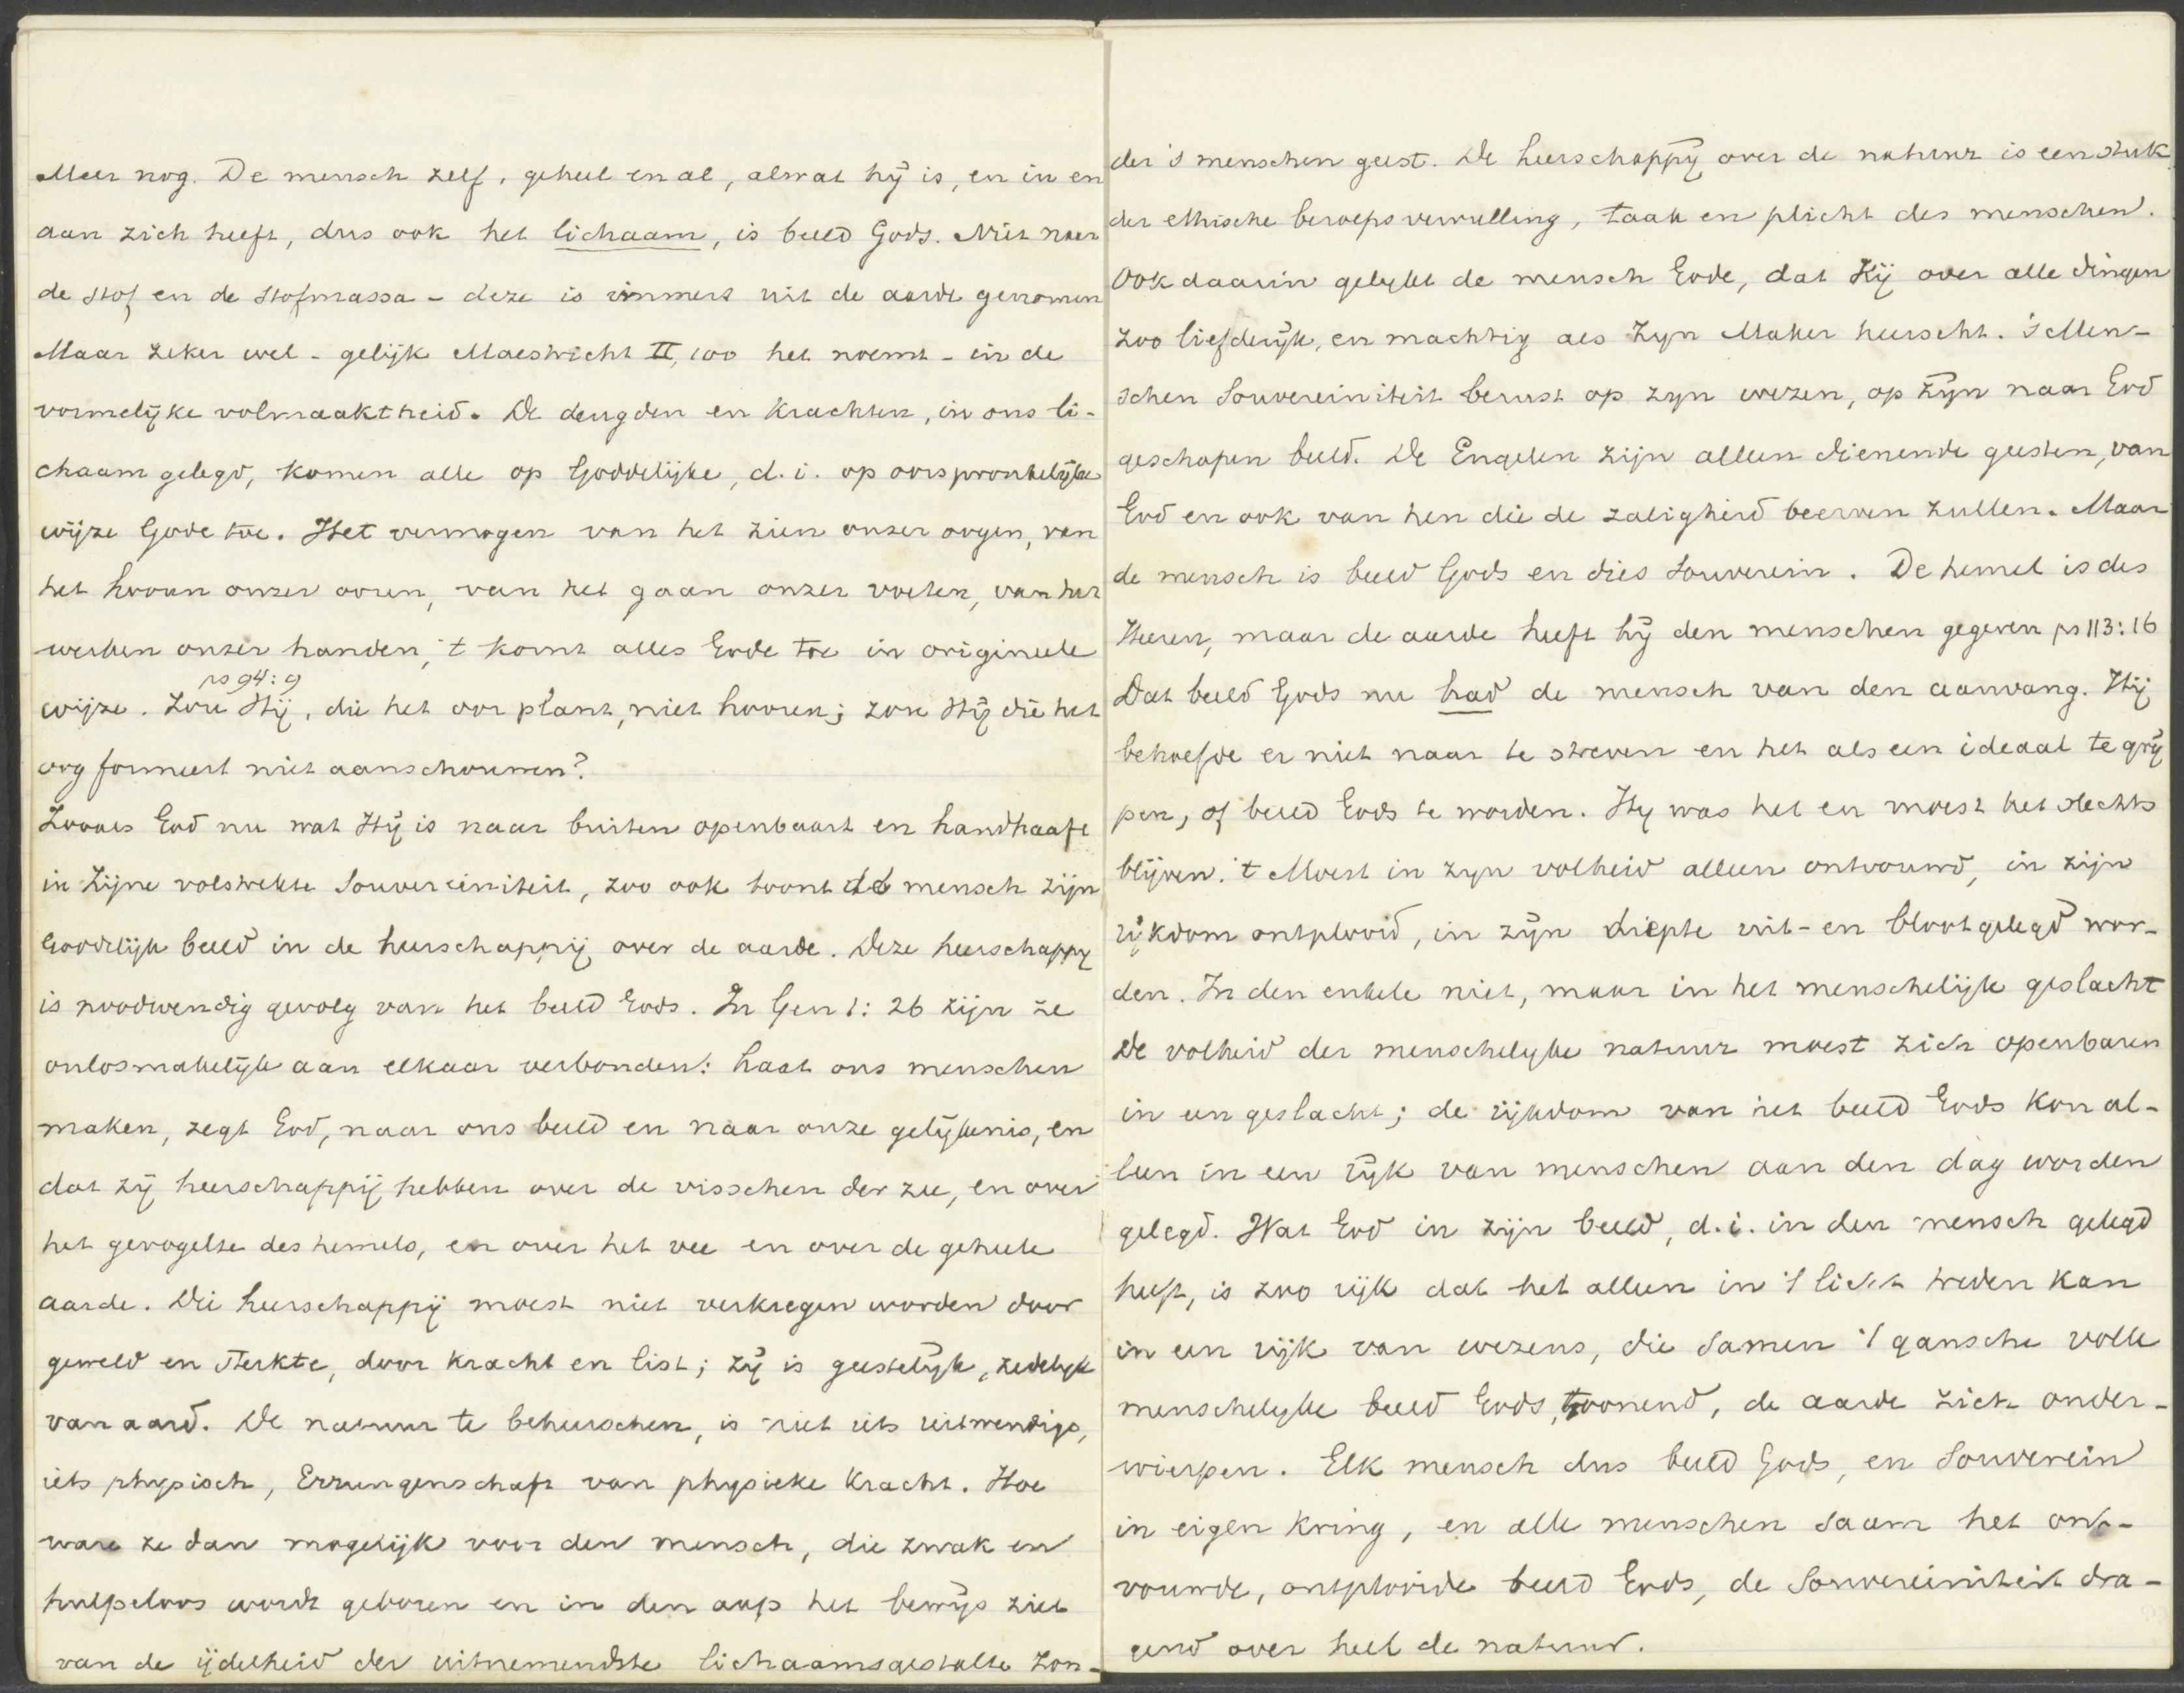 Meer nog. De mensch zelf, geheel en al, alwat hij is, en in en
aan zich heeft, dus ook het lichaam, is beeld Gods. Niet naar
de stof en de stofmassa - deze is immers uit de aarde genomen
Maar zeker wel - gelijk Maestricht II, 100 het noemt - in de
vormelijke volmaaktheid. De deugden en krachten, in ons li-
chaam gelegd, komen alle op Goddelijke, d.i. op oorspronkelijke
wijze Gode toe. Het vermogen van het zien onzer oogen, van
het hooren onzer ooren, van het gaan onzer voeten, van het
werken onzer handen, 't komt alles Gode toe in origineele
ps 94:9
wijze. Zou Hij, die het oor plant, niet hooren; zou Hij die het
oog formeert niet aanschouwen?
Zooals God nu wat Hij is naar buiten openbaart en handhaaft
in Zijne volstrekte Souvereiniteit, zoo ook toont de mensch zijn
Goddelijk beeld in de heerschappij over de aarde. Deze heerschappy
is noodwendig gevolg van het beeld Gods. In Gen 1:26 zijn ze
onlosmakelijk aan elkaar verbonden: Laat ons menschen
maken, zegt God, naar ons beeld en naar onze gelijkenis, en
dat zij heerschappij hebben over de visschen der zee, en over
het gevogelte des hemels, en over het vee en over de geheele
aarde. Die heerschappij moest niet verkregen worden door
geweld en sterkte, door kracht en list; zij is geestelijk, zedelyk
van aard. De natuur te beheerschen, is niet iets uitwendigs,
iets physisch, Errungenschaft van physieke kracht. Hoe
ware ze dan mogelijk voor den mensch, die zwak en
hulpeloos wordt geboren en in den aap het bewijs ziet
van de ijdelheid der uitnemendste lichaamsgestalte zon-
der 's menschen geest. De heerschappij over de natuur is een stuk
der ethische beroepsvervulling, taak en plicht des menschen.
Ook daarin gelykt de mensch Gode, dat Hij over alle dingen
zoo liefderijk, en machtig als Zyn Maker heerscht. 's Men-
schen Souvereiniteit berust op zyn wezen, op zijn naar God
geschapen beeld. De Engelen zijn alleen dienende geesten, van
God en ook van hen die de zaligheid beerven zullen. Maar
de mensch is beeld Gods en dies Souverein. De hemel is des
Heeren, maar de aarde heeft hij den menschen gegeven ps 113:16
Dat beeld Gods nu had de mensch van den aanvang. Hij
behoefde er niet naar te streven en het als een ideaal te grij
pen, of beeld Gods te worden. Hy was het en moest het slechts
blijven. 't Moest in zyn volheid alleen ontvouwd, in zijn
rijkdom ontplooid, in zijn diepte uit- en blootgelegd wor-
den. In den enkele niet, maar in het menschelijk geslacht
De volheid der menschelyke natuur moest zich openbaren
in een geslacht; de rijkdom van het beeld Gods kon al-
leen in een rijk van menschen aan den dag worden
gelegd. Wat God in zijn beeld, d.i. in den mensch gelegd
heeft, is zoo rijk dat het alleen in 't licht treden kan
in een rijk van wezens, die samen 't gansche volle
menschelyke beeld Gods, toonend, de aarde zich onder-
wierpen. Elk mensch dus beeld Gods, en Souverein
in eigen kring, en alle menschen saam het ont-
vouwde, ontplooide beeld Gods, de Souvereiniteit dra-
gend over heel de natuur.